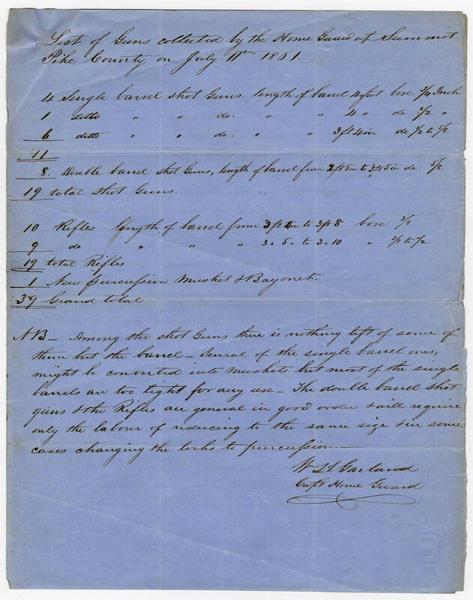 List of Guns collected by the Home Guard of Summit
Pike County on July 11th 1861.
4 Single barrel shot Guns length of barrel 4 feet bore 3/4 Inch
1 ditto " " do. " " 4 " do 1/2 "
6 ditto " " do. " " 3 ft 4 in do
11
8 Double barrel shot Guns, length of barrel from 2 ft 8 in to 3 ft 5 in do 5/8
19 total Shot Guns.
10 Rifles length of barrel from 3 ft 2 in to 3 ft 8 bore
9 do " " " " 3. 5. to 3. 10 "
19 total Rifles
1 New percussion Musket & Bayonet.
39 Grand total
NB — Among the shot Guns there is nothing left of some of
them but the barrel — Several of the single barrel ones,
might be converted into Muskets but most of the single
barrels are too light for any use — The double barrel shot
guns & the Rifles are general in good order & will require
only the labour of reducing to the same size & in some
cases changing the locks to percussion —
Garland
Capt Home Guard